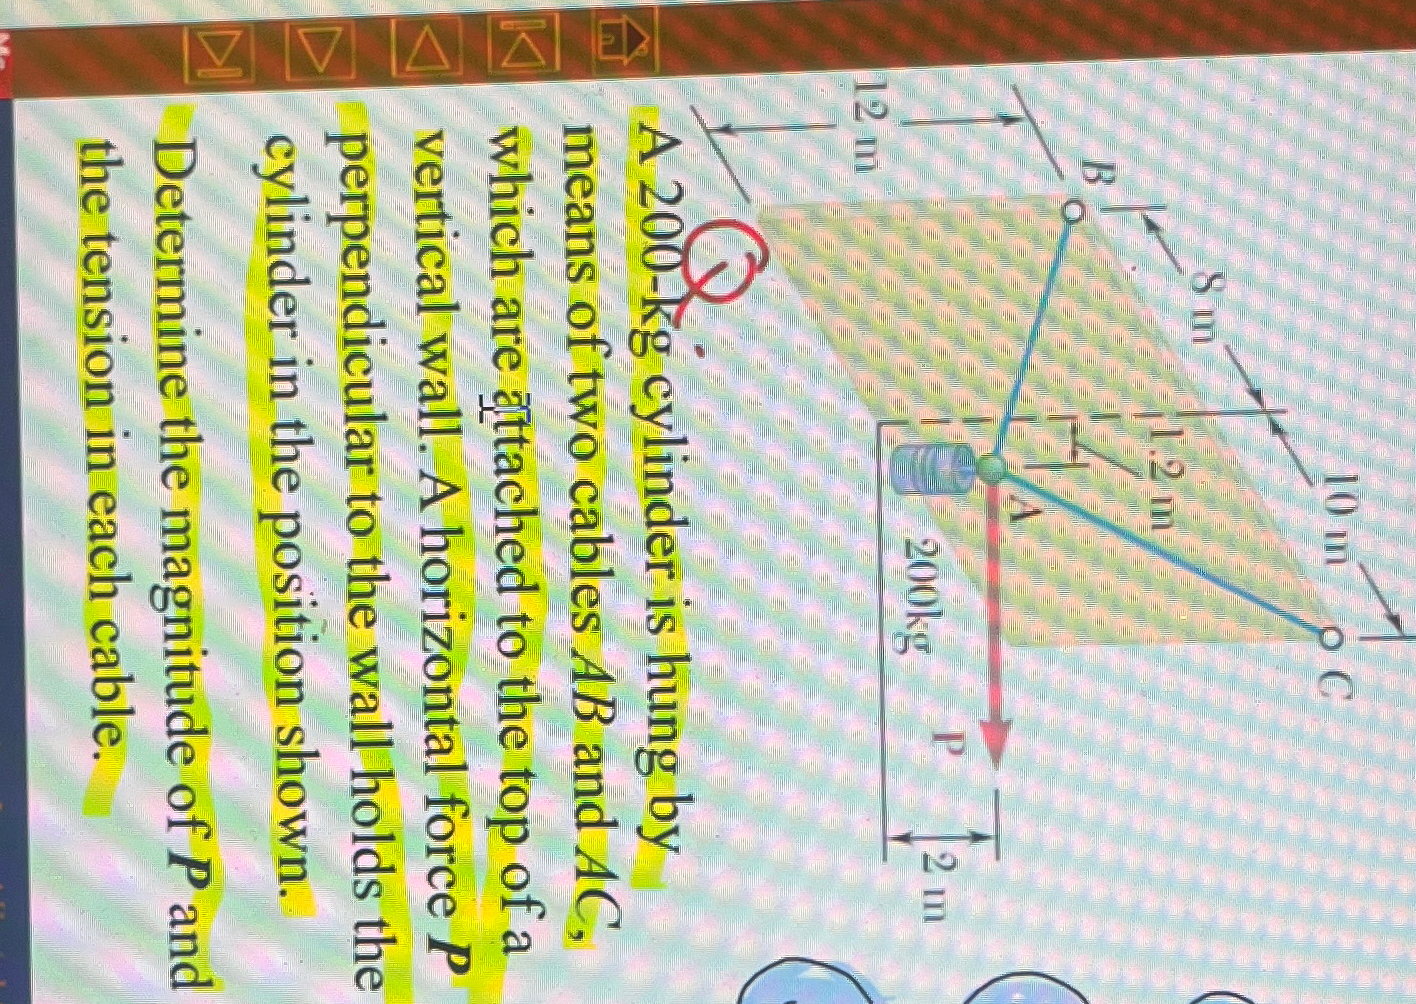 B
8 m
10 m
C
12 m
1.2 m
A
P
200kg
2 m
Q.
A 200-kg cylinder is hung by
means of two cables AB and AC,
which are attached to the top of a
vertical wall. A horizontal force P
perpendicular to the wall holds the
cylinder in the position shown.
Determine the magnitude of P and
the tension in each cable.